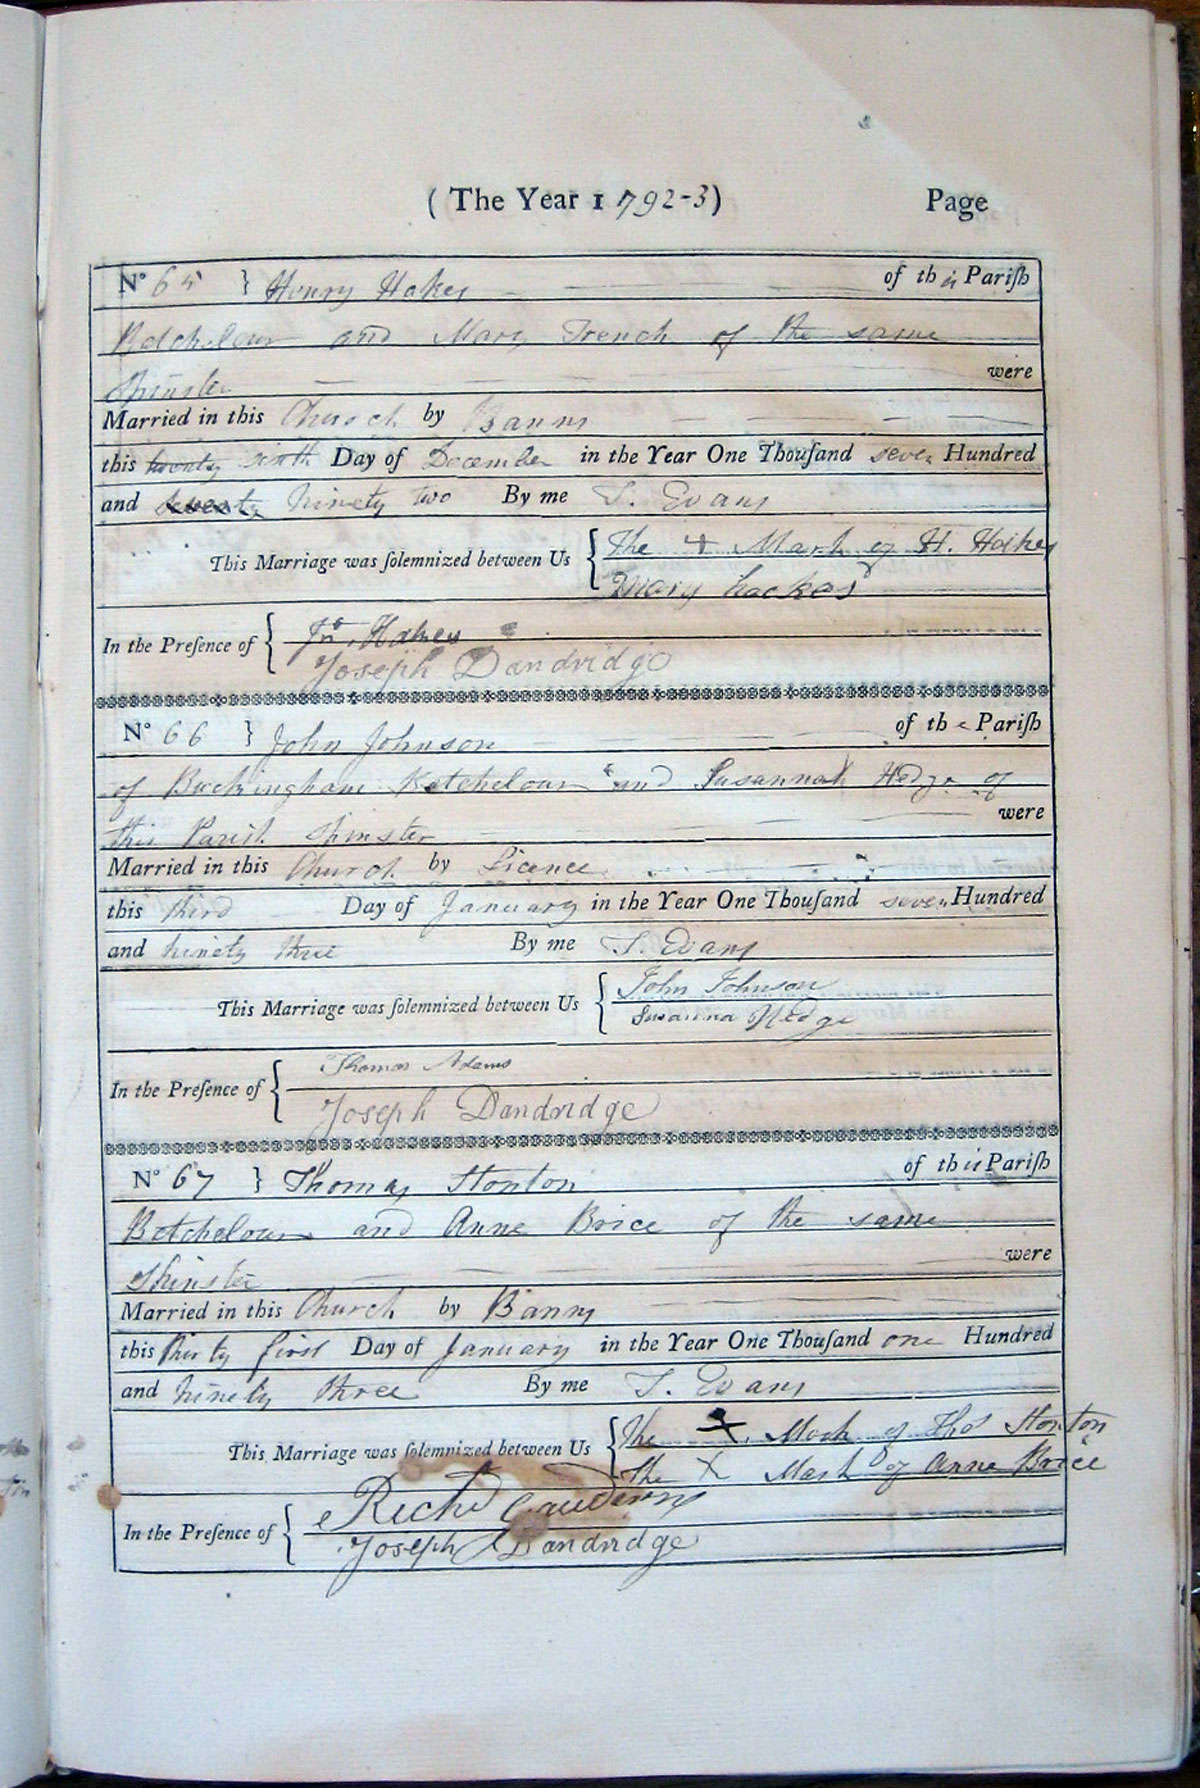 ( The Year 1792-3) Page
No 65 } Henry Hakes of this Parish
Batchelour and Mary French of the same
Spinster were
Married in this Church by Banns
this twenty sixth Day of December in the Year One Thousand seven Hundred
and seventy Ninety two By me T. Evans
This Marriage was solemnized between Us { The + Mark of H. Hakes
Mary hackes
In the Presence of { Jno. Hakes
Joseph Dandridge
No 66 } John Johnson of the Parish
of Buckingham Batchelour and Susannah Hedge of
this Parish Spinster were
Married in this Church by Licence
this third Day of January in the Year One Thousand seven Hundred
and ninety three By me T. Evans
This Marriage was solemnized between Us { John Johnson
Susanna Hedge
In the Presence of { Thomas Adams
Joseph Dandridge
No 67 } Thomas Stonton of this Parish
Batchelour and Anne Brice of the same
Spinster were
Married in this Church by Banns
this thirty first Day of January in the Year One Thousand one Hundred
and ninety three By me T. Evans
This Marriage was solemnized between Us { The X Mark of Thos Stonton
The X Mark of Anne Brice
In the Presence of { Richd
Joseph Dandridge